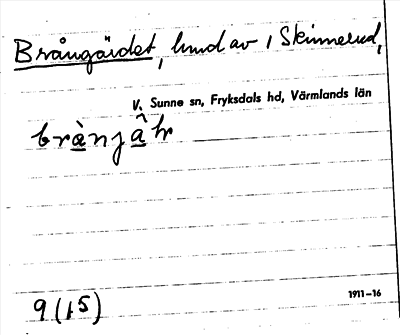 Brångärdet, hmd av 1 Skinnerud,
V. Sunne sn, Fryksdals hd, Värmlands län
brànjâr
9(15) 1911-16